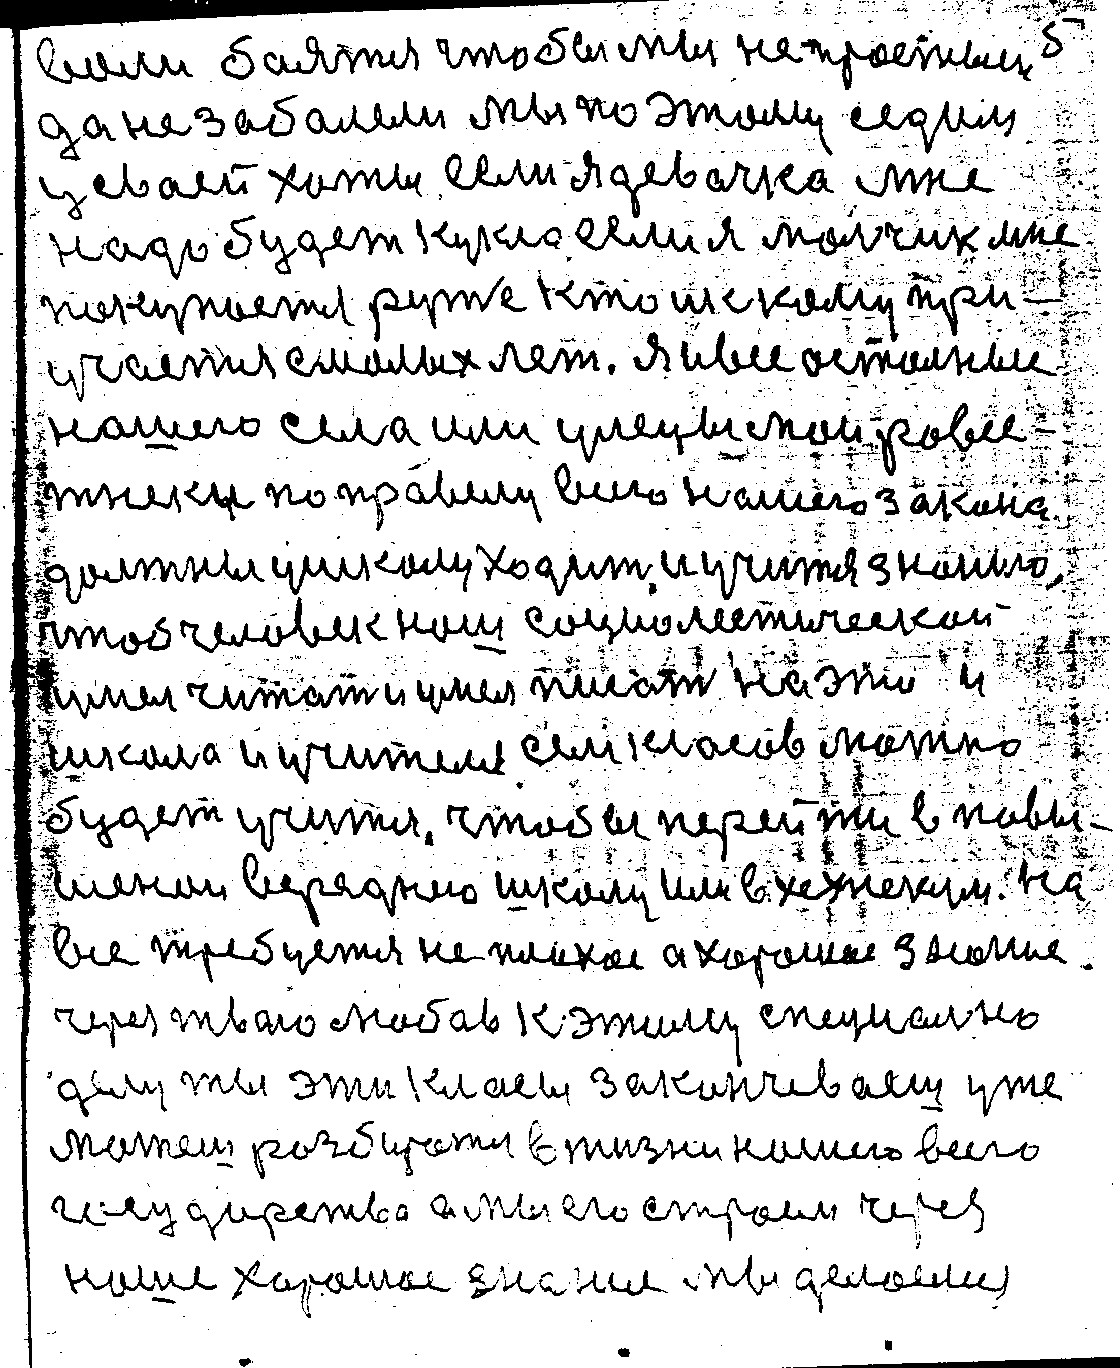 вали баятся чтобы мы не простыли, 5
да не забалели мы поэтому седим
у сваей хоты если я девачка мне
надо будет кукла если я мальчик мне
покупается руже кто шк кому при-
учается смалых лет. я и все осталные
нашего села или улецы мои ровес-
тнеки по правелу всего нашего закона
должны у школу ходит, и учится знанию,
чтоб человек наш социолестическай
умел читат и умел писат на эта и
школа и учителя семь класов можно
будет учится, чтобы перейти в павы-
шеной в среднею школу или в техтекум. На
все требуется не плахое а хорошае знание.
через тваю любав к этаму специално
делу ты эти класы закончеваеш уже
можеш розбиратся в жизни нашего всего
государства а мы его строем через
наше харошае знание мы делаемся